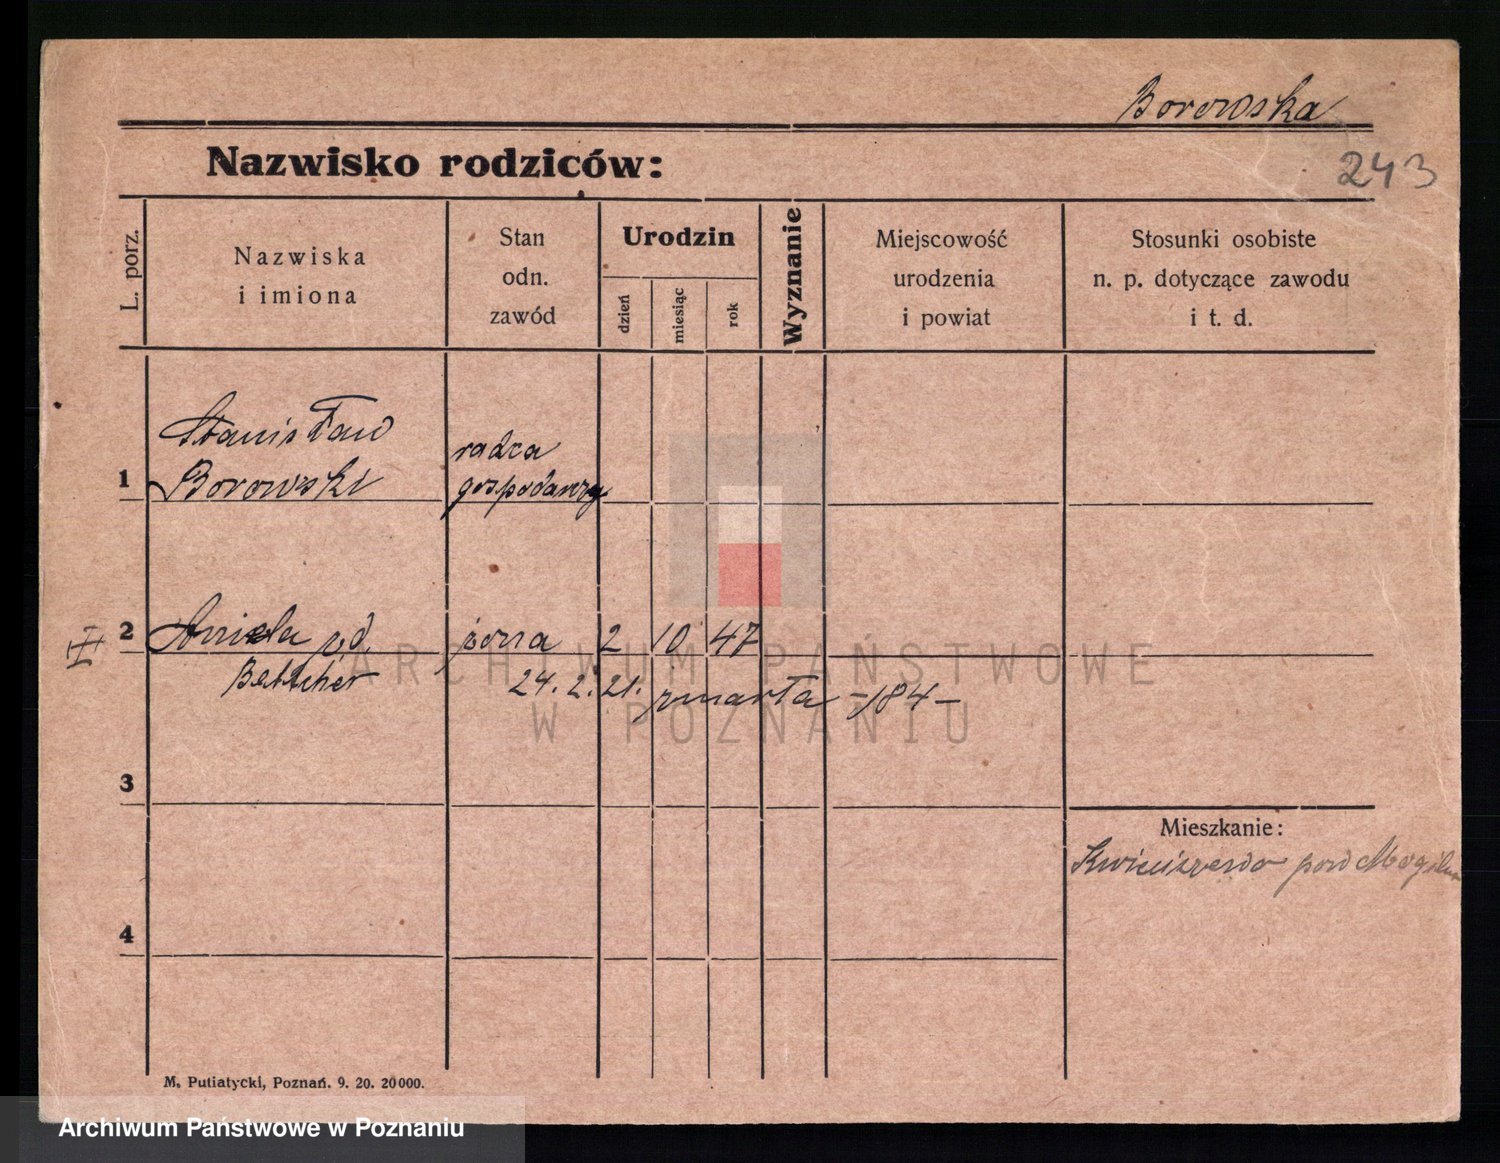 Borowska
243
Nazwisko rodziców:
L. porz.
Nazwiska
i imiona
Stan
odn.
zawód
Urodzin
dzień
miesiąc
rok
Wyznanie
Miejscowość
urodzenia
i powiat
Stosunki osobiste
n. p. dotyczące zawodu
i t. d.
1
Stanisław
Borowski
radca
gospodarczy
2
Aniela
żona
2
10
47
24. 2. 21. zmarła -184-
ARCHIWUM PAŃSTWOWE
W POZNANIU
3
Mieszkanie:
pod Mogilnem
4
M. Putiatycki, Poznań. 9. 20. 20000.
Archiwum Państwowe w Poznaniu